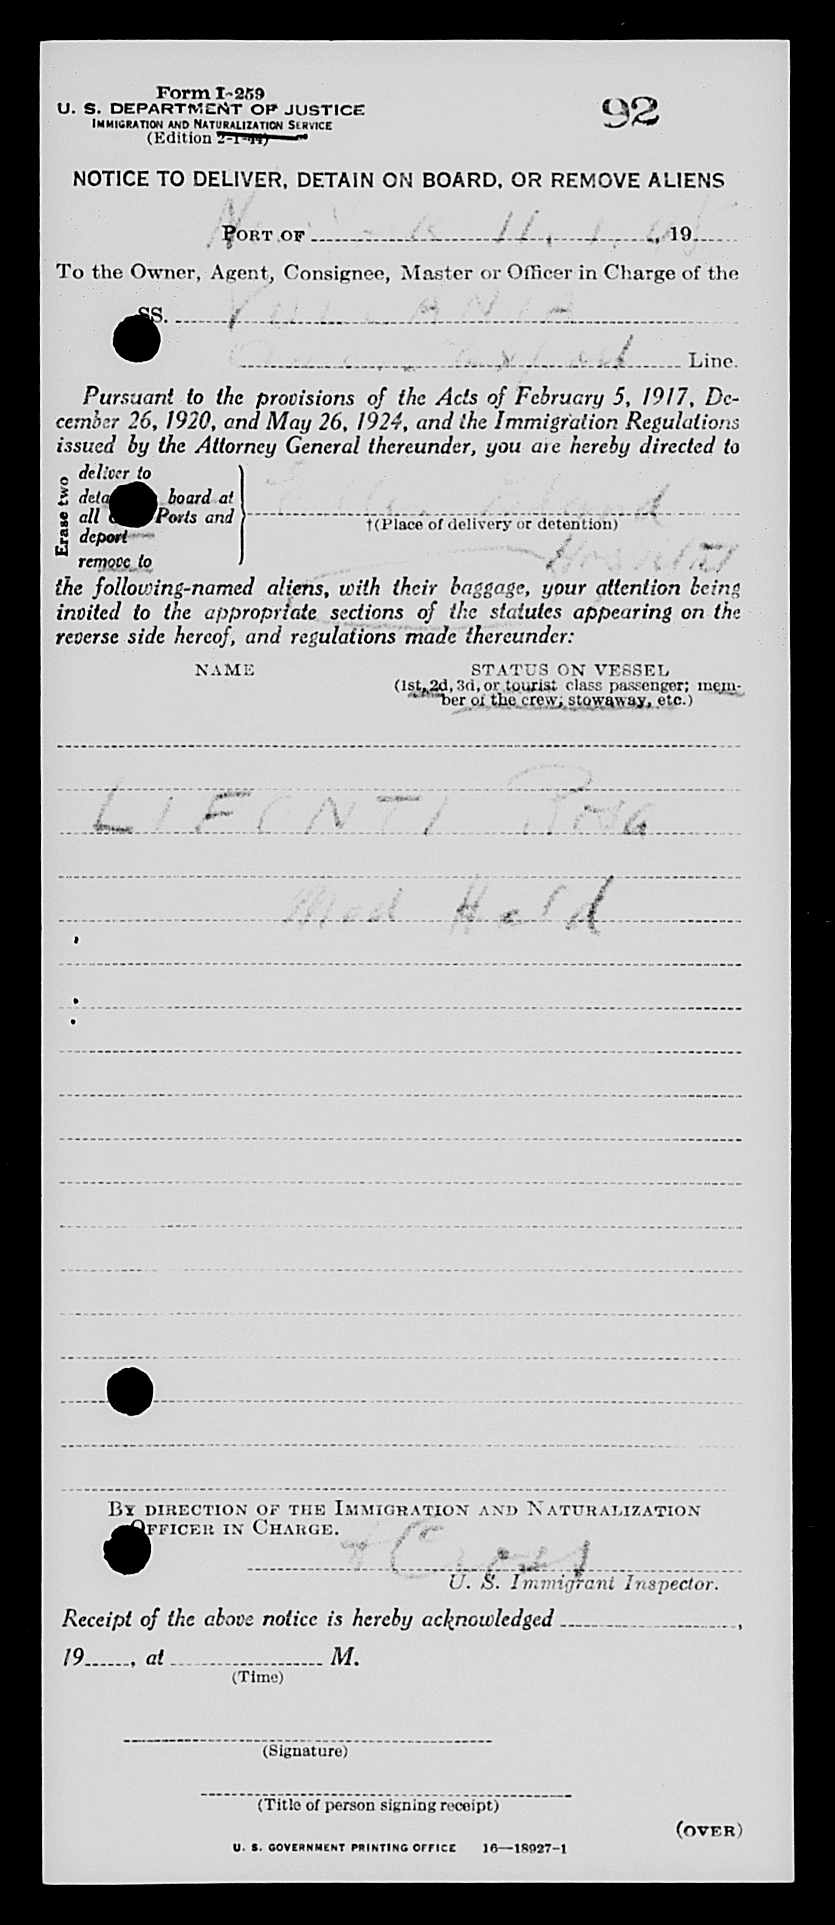 Form I-259
U. S. DEPARTMENT OF JUSTICE
IMMIGRATION AND NATURALIZATION SERVICE
(Edition 2-1-44)
92
NOTICE TO DELIVER, DETAIN ON BOARD, OR REMOVE ALIENS
PORT OF 19
To the Owner, Agent, Consignee, Master or Officer in Charge of the
SS. VULCANIA
Line.
Pursuant to the provisions of the Acts of February 5, 1917, De-
cember 26, 1920, and May 26, 1924, and the Immigration Regulations
issued by the Attorney General thereunder, you are hereby directed to
Erase two
deliver to
board at
all Ports and
deport
remove to
Ellis Island
†(Place of delivery or detention)
Hospital
the following-named aliens, with their baggage, your attention being
invited to the appropriate sections of the statutes appearing on the
reverse side hereof, and regulations made thereunder:
NAME STATUS ON VESSEL
(1st, 2d, 3d, or tourist class passenger; mem-
ber of the crew; stowaway, etc.)
LIFONTI Rosa
Med Held
BY DIRECTION OF THE IMMIGRATION AND NATURALIZATION
OFFICER IN CHARGE.
U. S. Immigrant Inspector.
Receipt of the above notice is hereby acknowledged ,
19 , at M.
(Time)
(Signature)
(Title of person signing receipt)
(OVER)
U. S. GOVERNMENT PRINTING OFFICE 16—18927-1